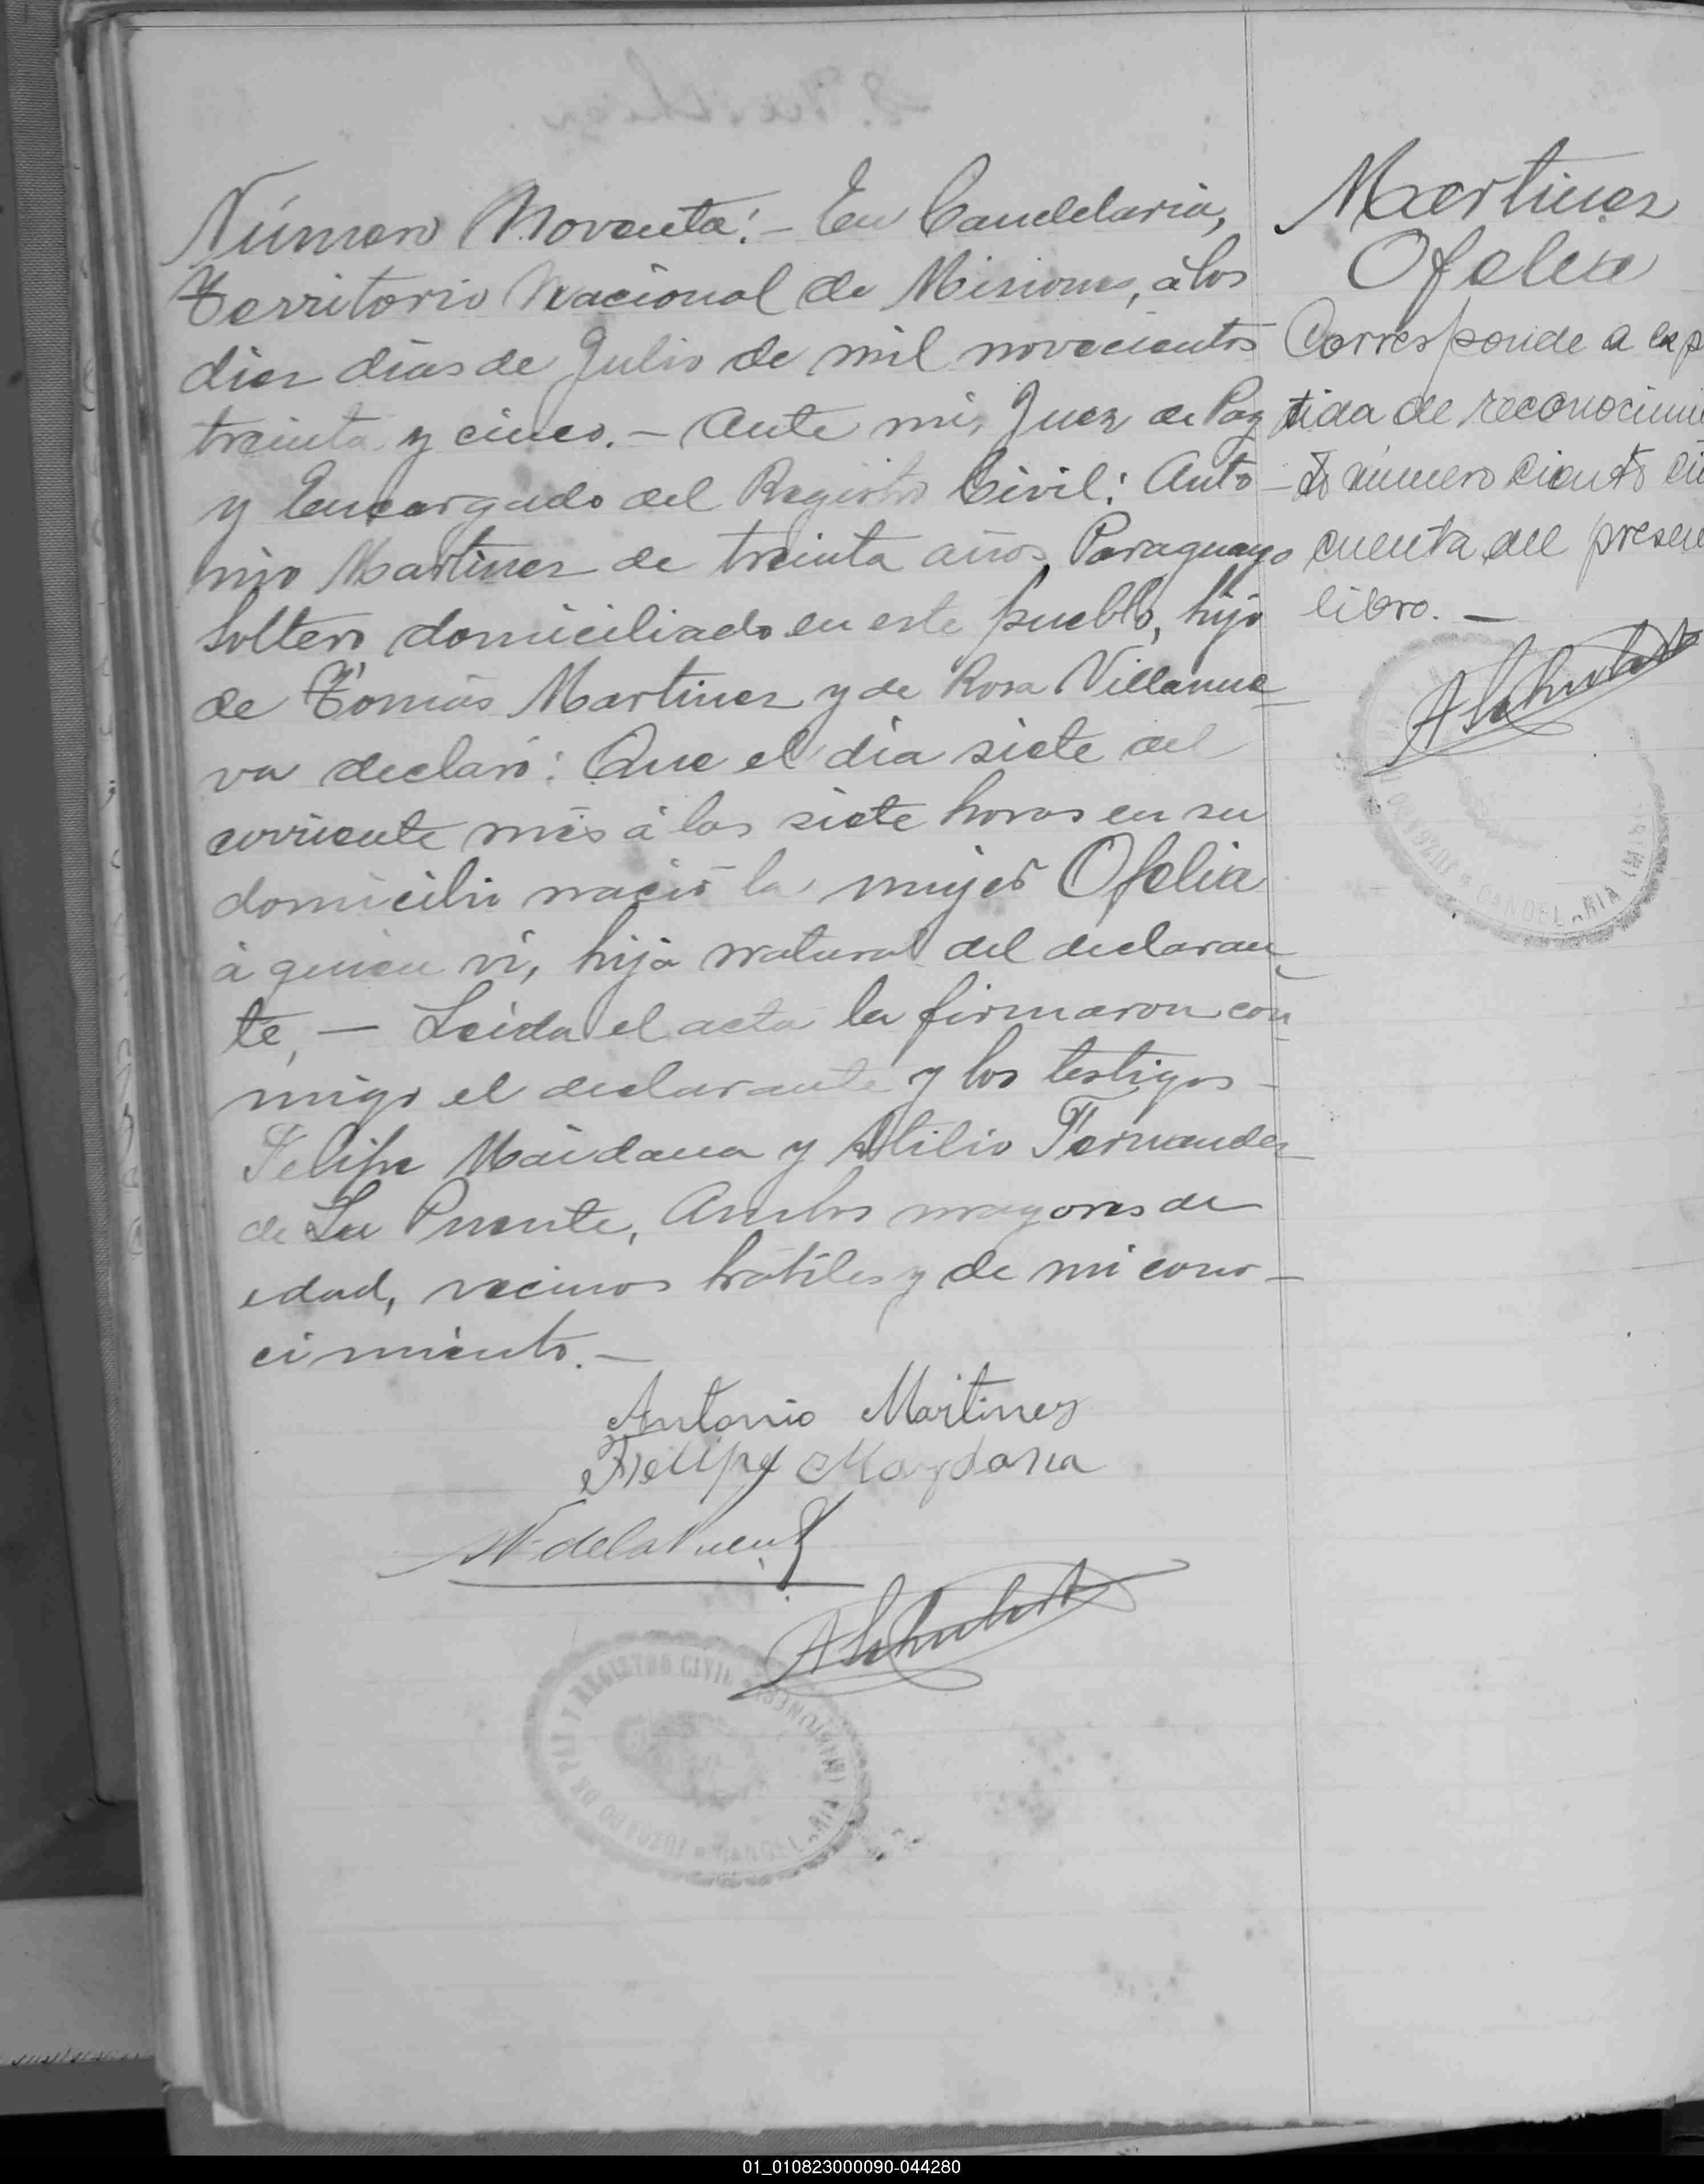 Número Noventa: - En Candelaria,
Territorio Nacional de Misiones, á los
diez dias de Julio de mil novecientos
treinta y cinco. - Ante mi, Juez de Paz
y Encargado del Registro Civil: Anto-
nio Martinez de treinta años, Paraguayo
soltero domiciliado en este pueblo, hijo
de Tomás Martinez y de Rosa Villanue-
va declaró: Que el dia siete del
corriente més á las siete horas en su
domicilio nació la mujer Ofelia
á quien ví, hija natural del declaran-
te, - Leida el acta la firmaron con-
migo el declarante y los testigos -
Felipe Maidana y Atilio Fernandez
de La Puente, Ambos mayores de
edad, vecinos hábiles y de mi cono-
cimiento. -
Antonio Martinez
Felipe Maydana
de la Puente
JUZGADO DE PAZ Y REGISTRO CIVIL
Martinez
Ofelia
Corresponde a la p
tida de reconocimi
to número ciento cin
cuenta del presen
libro. -
CANDELARIA
01_010823000090-044280